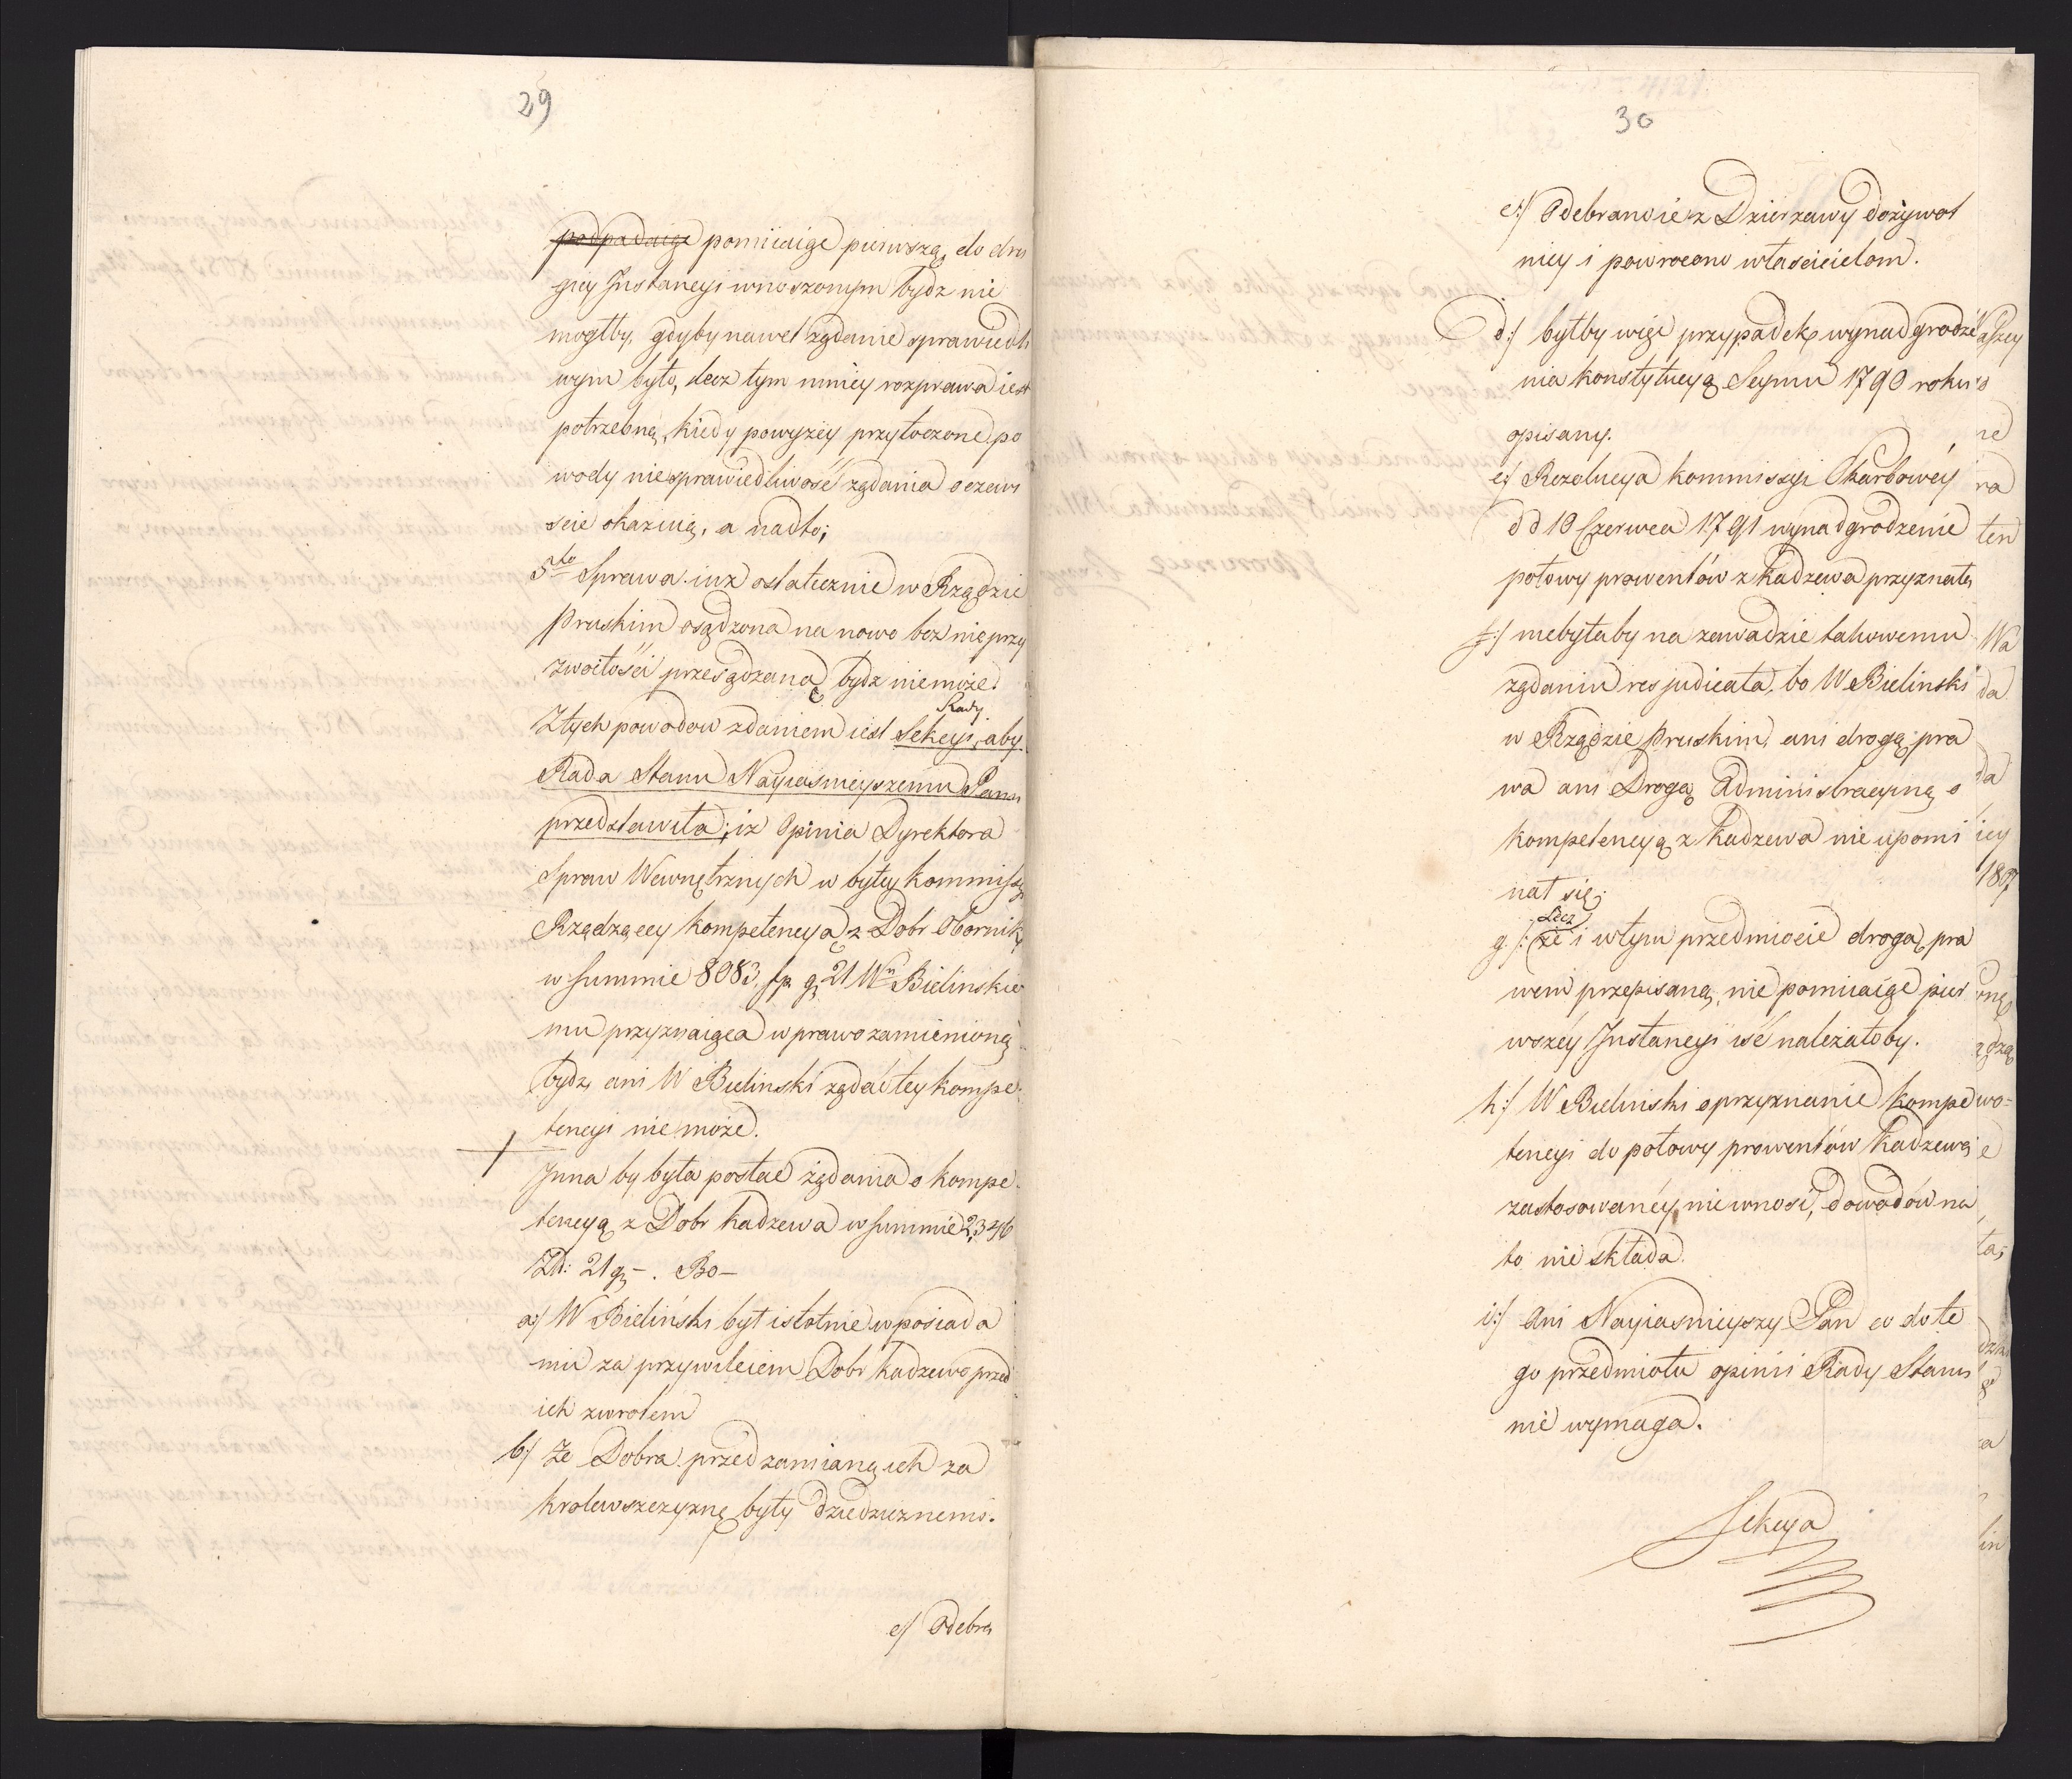 29
podpadaiąc pomiiaiąc pierwszą, do dru
giey Instancyi wnoszonym bydz nie
mogłby, gdyby nawet żądanie sprawiedli
wym było, lecz tym mniey rozprawa iest
potrzebną, kiedy powyżey przytoczone po
wody niesprawiedliwość żądania oczewi
ście okazuią, a nadto;
5to Sprawa iuz ostatecznie w Rządzie
Pruskim osądzona na nowo bez nieprzy
zwoitości przesądzaną bydz niemoże.
Rady
Ztych powodow zdaniem iest Sekcyi, aby
Rada Stanu Nayiasnieyszemu Panu
przedstawiła; iż Opinia Dyrektora
Spraw Wewnętrznych w byłey Kommissyi
Rządzącey kompetencyą z Dobr Obornik
w Summie 8083, fp. gr 21 Wn Bielinskie
mu przyznaiąca w prawo zamienioną
bydz, ani W Bielinski żądać tey kompe
tencyi nie może.
Inna by była postać żądania o kompe
tencyą z Dobr Kadzewa w Summie 2346
Zł: 21 gr -. Bo -
a:/ W Bieliński był istotnie w posiada
niu za przywileiem Dobr Kadzewo przed
ich zwrotem
b:/ że Dobra przed zamianą ich za
Krolewszczyznę były dziedzicznemi.
c/ Odebra
30
c:/ Odebranie z Dzierzawy dożywot
niey i powrocono właścicielom.
d:/ byłby więc przypadek wynadgrodze
nia konstytucyą Seymu 1790 roku
opisany.
e/ Rezolucya Kommissyi Skarbowéy
dd 10 Czerwca 1791 wynadgrodzenie
połowy prowentów z Kadzewa przyznała,
f:/ niebyłaby na zawadzie takowemu
żądaniu res judicata, bo W Bielinski
w Rządzie Pruskim, ani drogą pra
wa ani Drogą Administracyiną o
kompetencyą z Kadzewa nie upomi
nał się;
Lecz
g:/ że i w tym przedmiocie drogą pra
wem przepisaną, nie pomiiaiąc pier
wszéy Instancyi iść należałoby.
h:/ W Bielinski o przyznanie kompe
tencyi do połowy prowentów Kadzewa
zastosowanéy niewnosi, dowodów na
to nie składa.
i:/ Ani Nayiasnieyszy Pan co do te
go przedmiotu opinii Rady Stanu
nie wymaga.
Sekcya